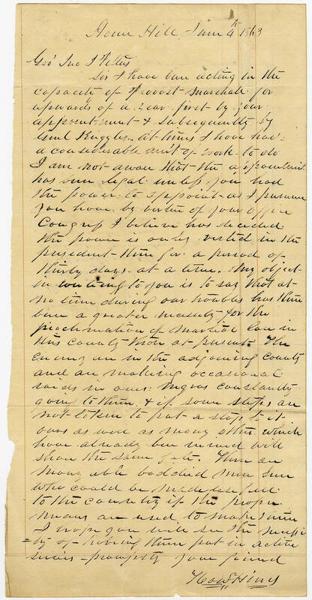 Hill Jan 4th 1863
Gov Jno J Pettus
Sir I have been acting in the
capacity of Provost Marshall for
upwards of a Year first by your
appointment & subsequently by
Genl Ruggles. at times I have had
a considerable amt of work to do
I am not aware that the appointment
has been legal unless you had
the power to appoint as I presume
you have by virtue of your office
Congress I believe has decided
the power is only vested in the
president & then for a period of
thirty days at a time. My object
in writing to you is to say that at
no time during our troubles has there
been a greater necessity for the
proclamation of Martial law in
this county than at present. The
enemy are in the adjoining county
and are making occasional
raids in ours. Negroes constantly
going to them & if some steps are
not taken to put a stop to it
ours as well as many others which
have already been ruined will
share the same fate. There are
many able bodied men here
who could be
to the country if the proper
means are used to make them
I hope you will see the
of having them put in active
service promptly your friend